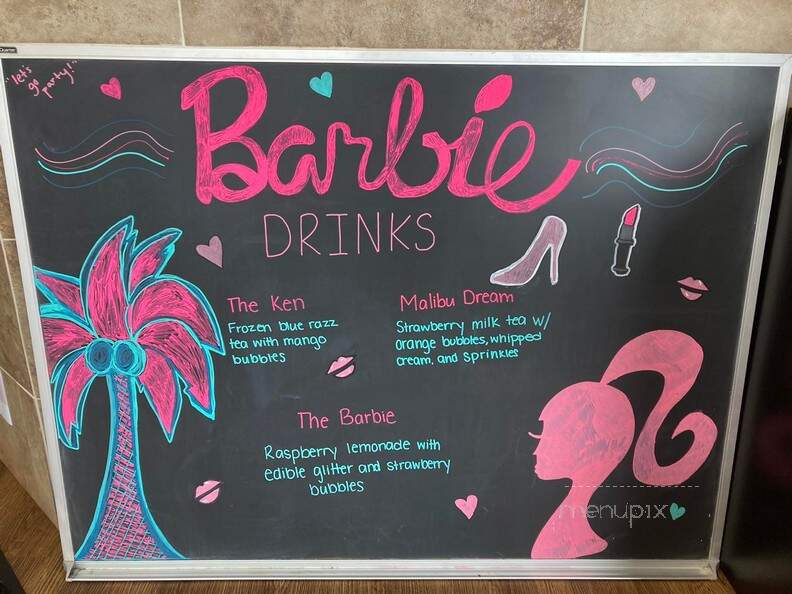 "let's
go
party!"
Barbie
DRINKS
The Ken
Frozen blue razz
tea with mango
bubbles
Malibu Dream
Strawberry milk tea w/
orange bubbles, whipped
cream, and sprinkles
The Barbie
Raspberry lemonade with
edible glitter and strawberry
bubbles
menupix